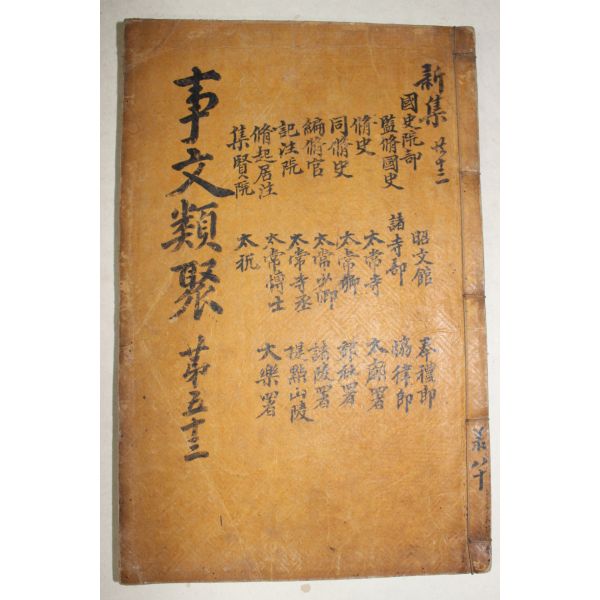 新集
國史院部
監脩國史
脩史
同脩史
編脩官
記注院
脩起居注
集賢院
昭文館
諸寺部
太常寺
太常卿
太常少卿
太常寺丞
太常博士
太祝
奉禮郎
協律郎
太廟署
郊社署
諸陵署
提點山陵
大樂署
事文類聚 苐五十三
八十